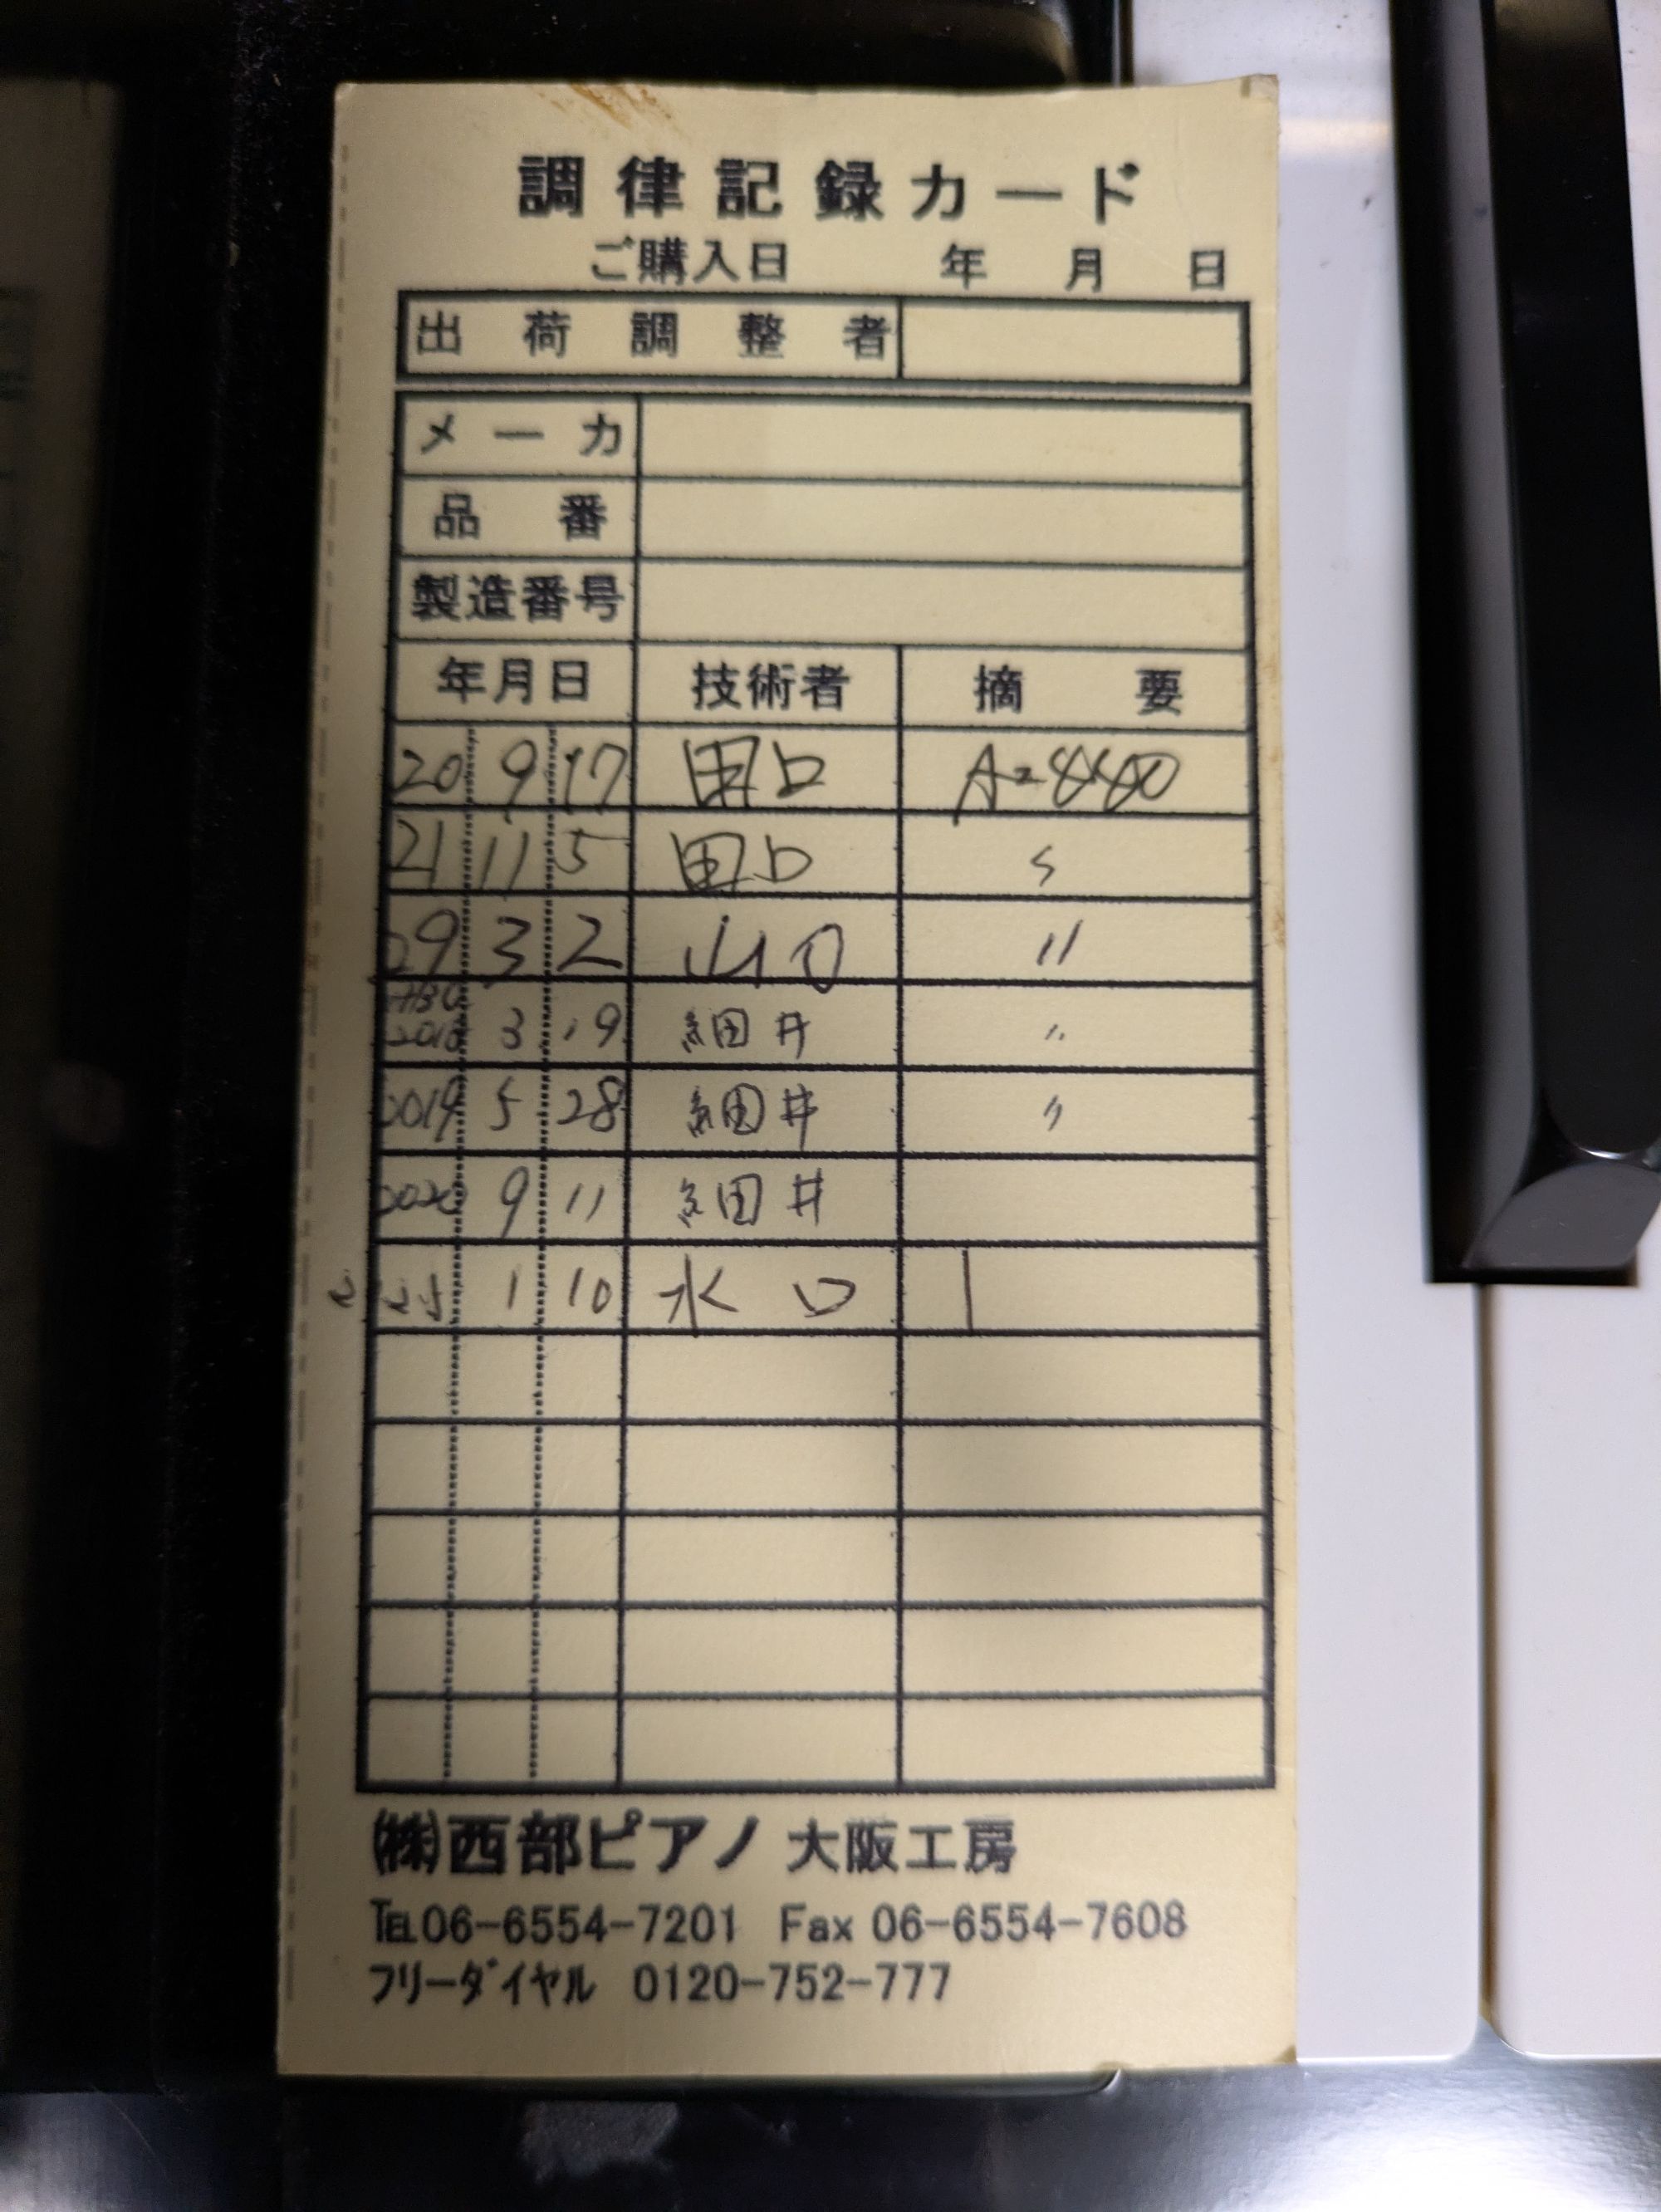 調律記録カード
ご購入日 年 月 日
出荷調整者
メーカ
品番
製造番号
年月日 技術者 摘要
20 9 17 田口 A=440
21 11 5 田口 〃
29 3 2 山口 〃
H30
2018 3 19 細井 〃
2019 5 28 細井 〃
2020 9 11 細井
1 10 水口
㈱西部ピアノ 大阪工房
TEL06-6554-7201 Fax 06-6554-7608
フリーダイヤル 0120-752-777